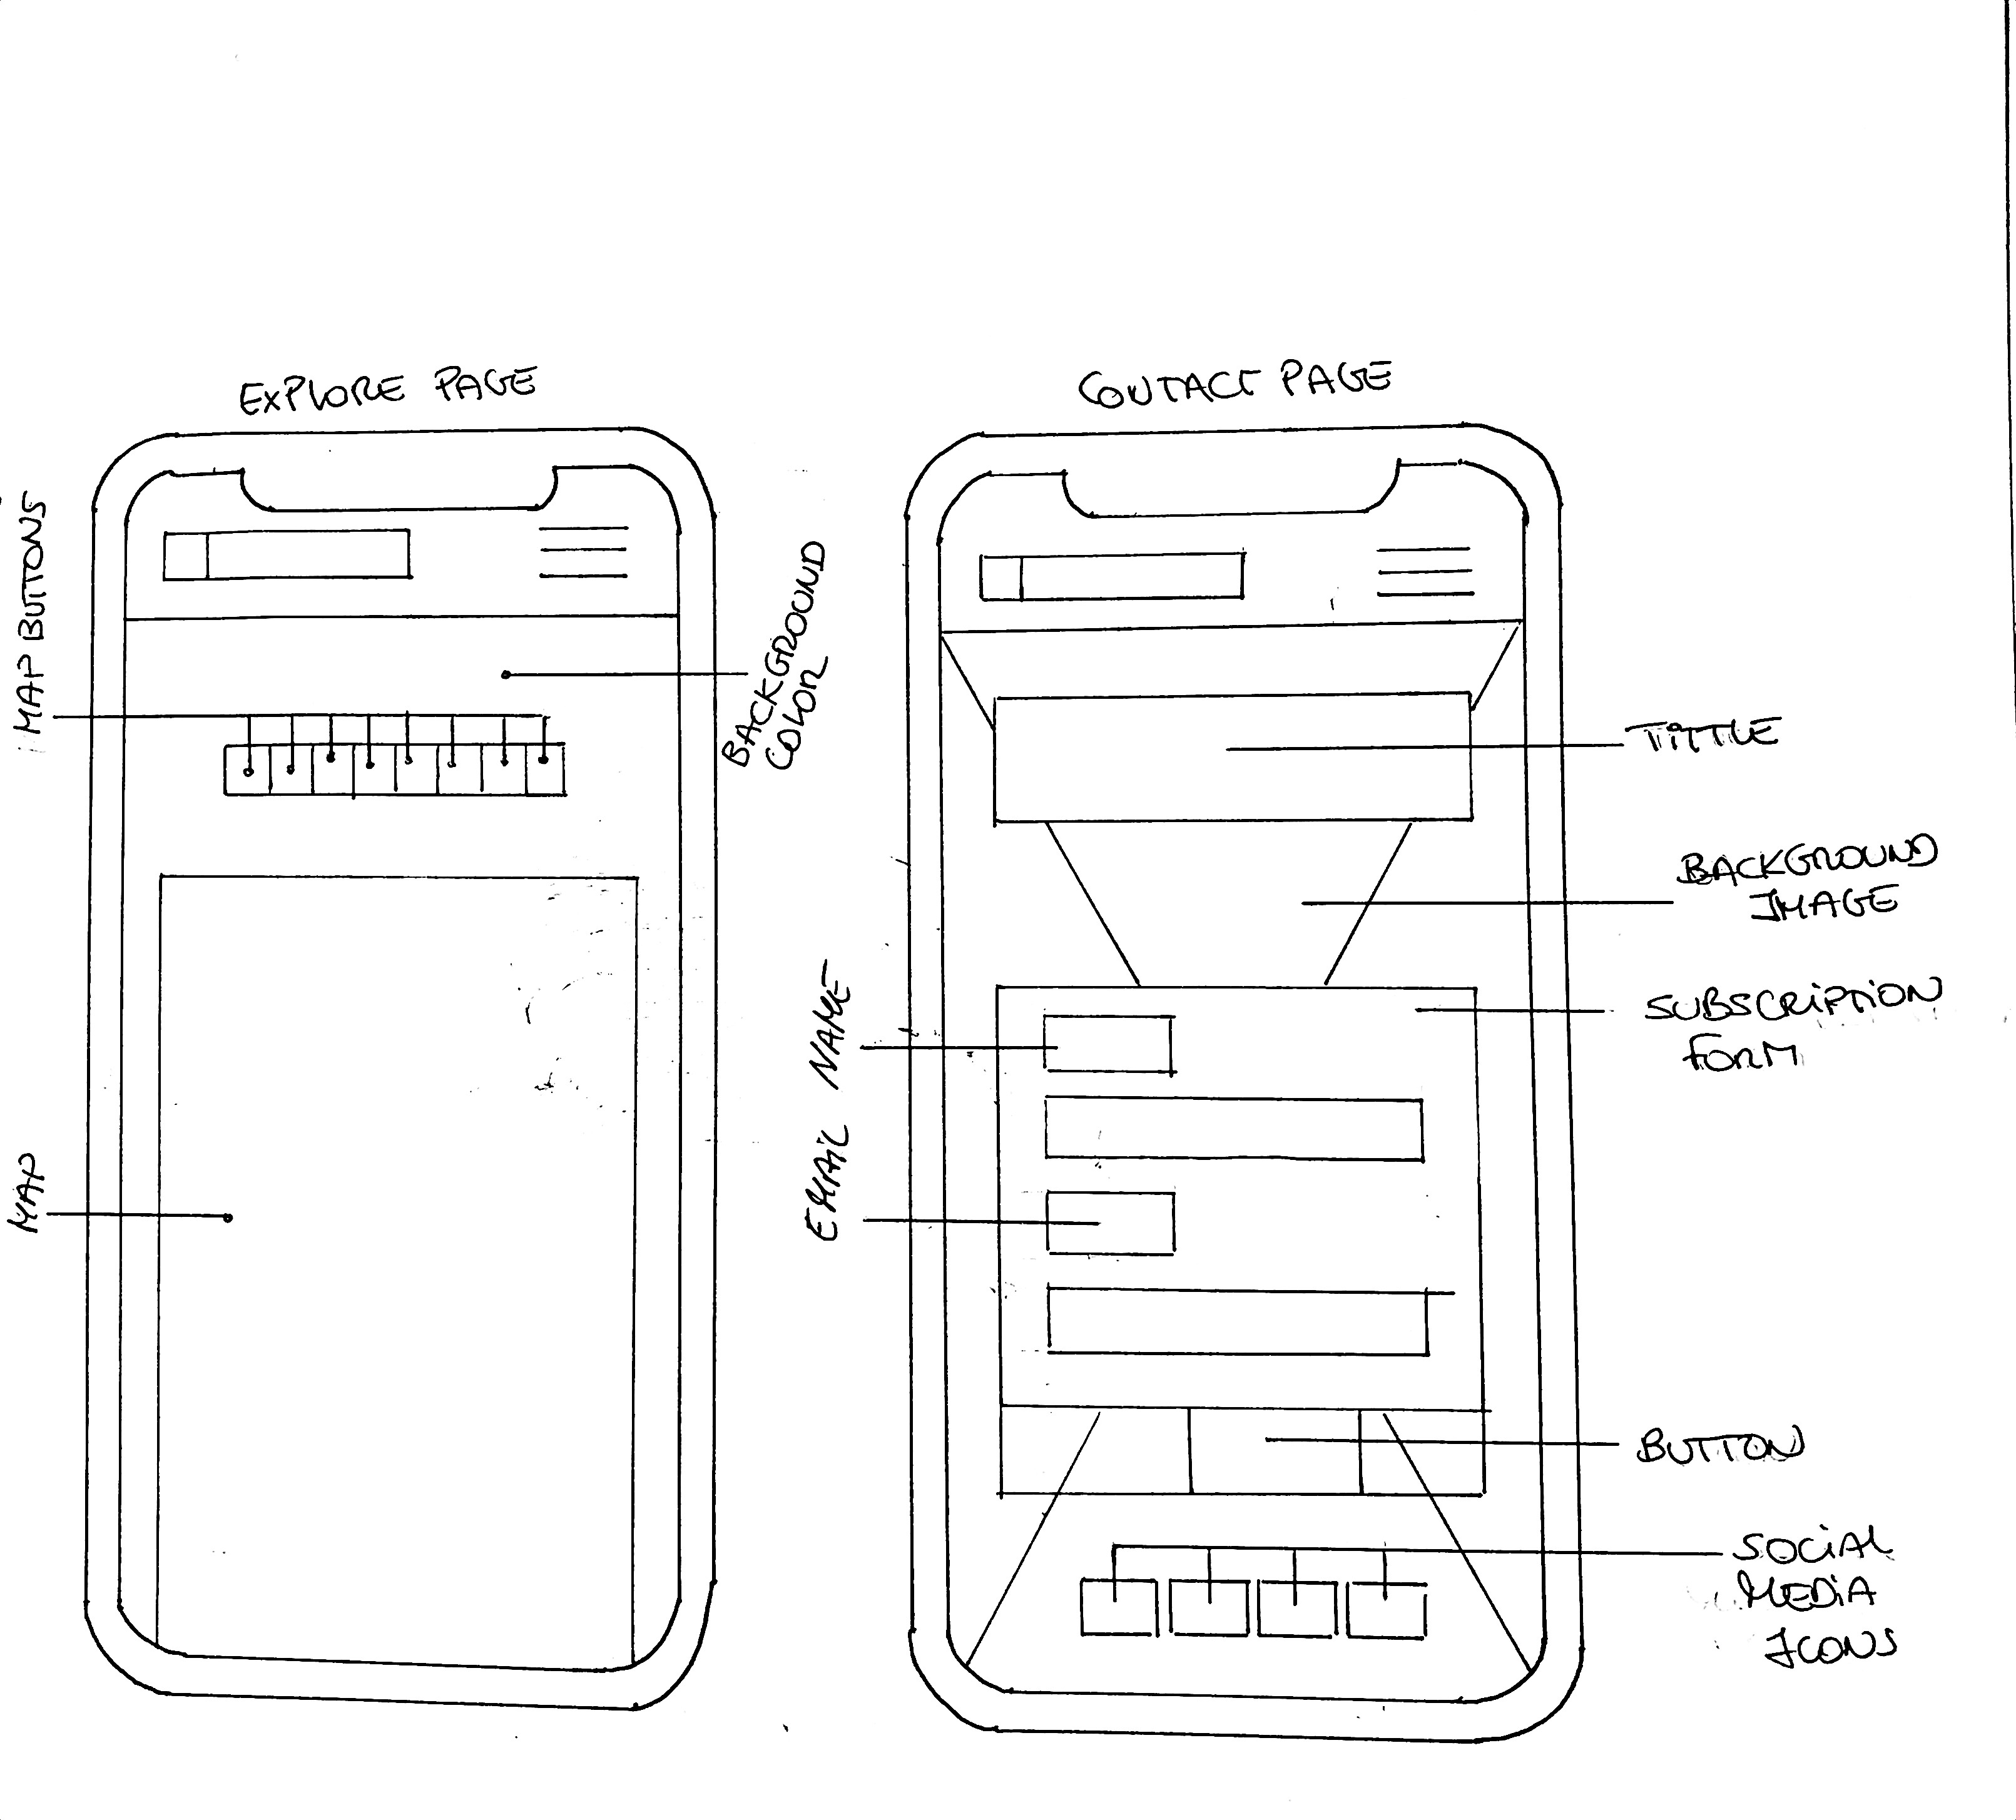 EXPLORE PAGE
MAP BUTTONS
BACKGROUND
COLOR
MAP
CONTACT PAGE
TITTLE
BACKGROUND
IMAGE
SUBSCRIPTION
FORM
NAME
EMAIL
BUTTON
SOCIAL
MEDIA
ICONS